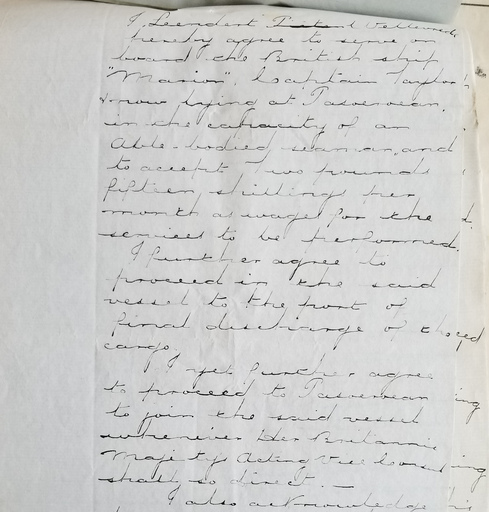 I, Leendert
hereby agree to serve on
board the British ship
"Marion", Captain Taylor
now lying at Pasoeroean,
in the capacity of an
Able-bodied seaman, and
to accept two pounds
fifteen shillings per
month as wages for the
services to be performed.
I further agree to
proceed in the said
vessel to the port of
final discharge of the
cargo.
I yet further agree
to proceed to Pasoeroean
to join the said vessel
whenever Her Britannic
Majesty's Acting Vice Consul
shall so direct. —
I also acknowledge